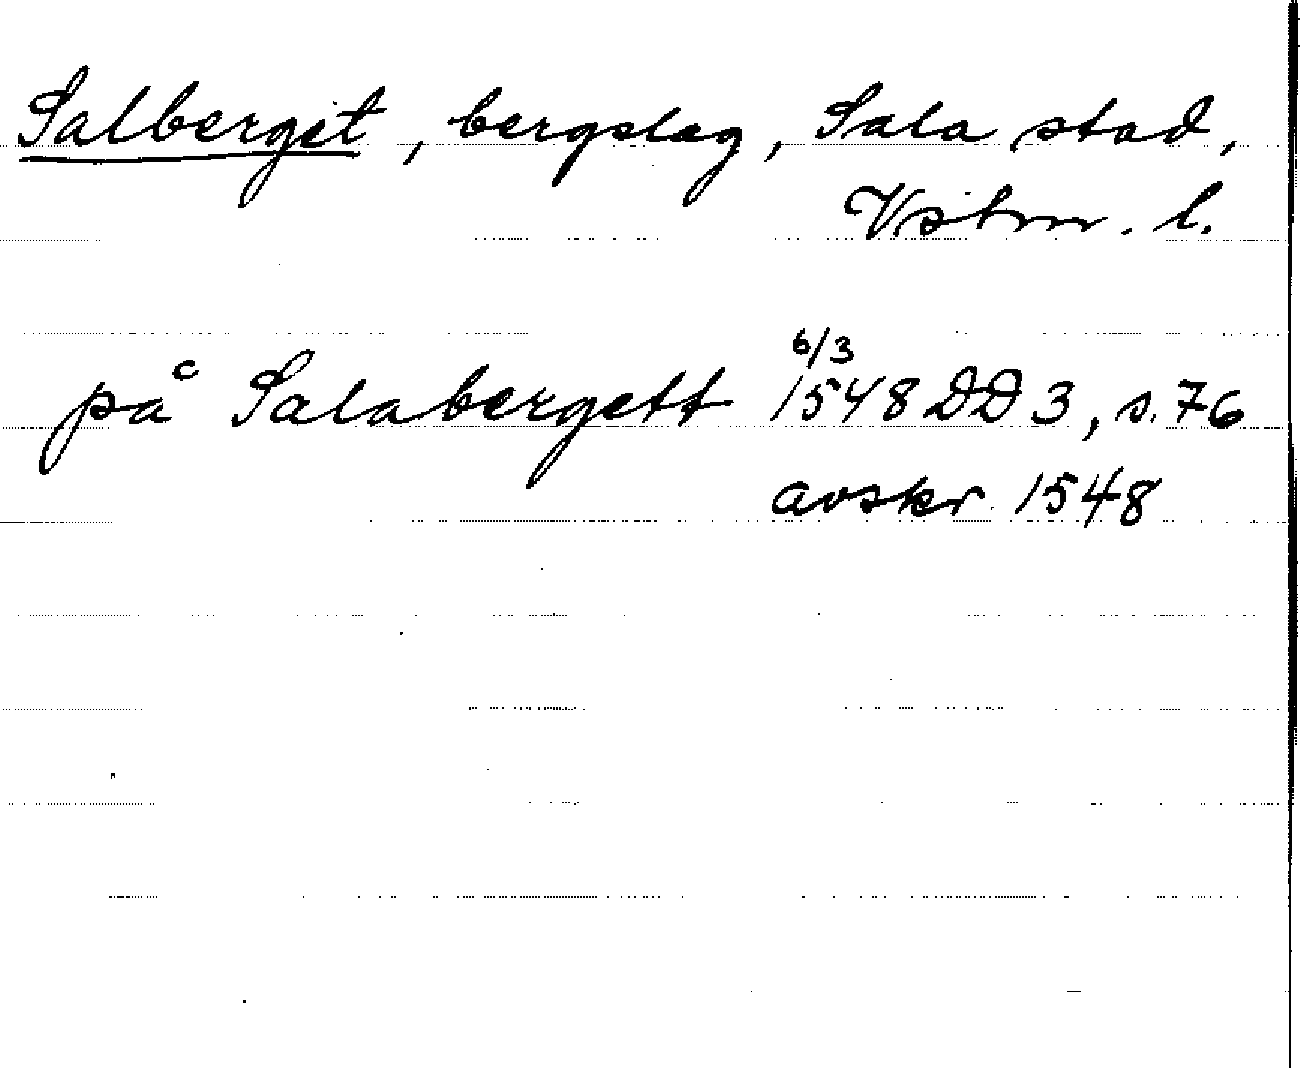 Salberget, bergslag, Sala stad,
Vstm. l.
på Salabergett 6/3 1548 DD 3, s. 76
avskr. 1548